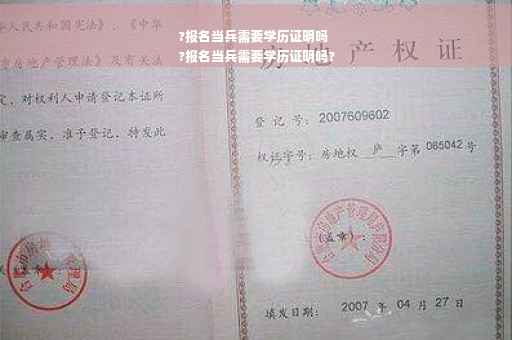 ?报名当兵需要学历证明吗
?报名当兵需要学历证明吗?
华人民共和国宪法》、《中华
房地产管理法》及有关法
定，对权利人申请登记本证所
审查属实，准予登记，特发此
房地产权证
登记号：2007609602
权证字号：房地权 庐 字第 085042 号
(盖章)：
填发日期： 2007 年 04 月 27 日